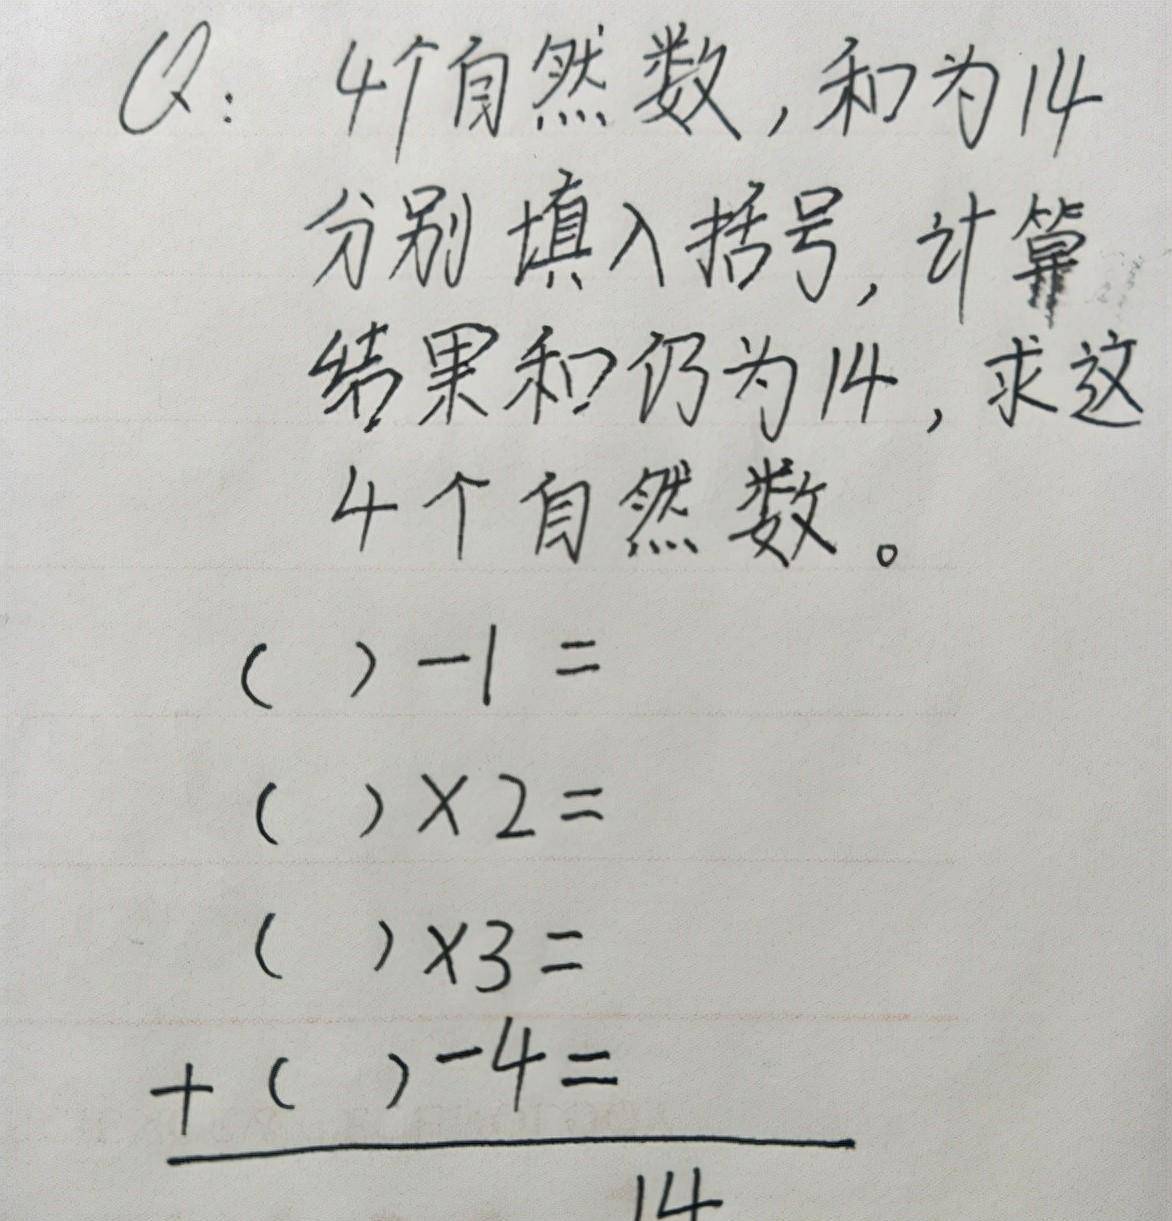 Q: 4个自然数,和为14
分别填入括号,计算
结果和仍为14,求这
4个自然数。
( ) -1 =
( ) ×2=
( ) ×3=
+ ( ) -4=
14